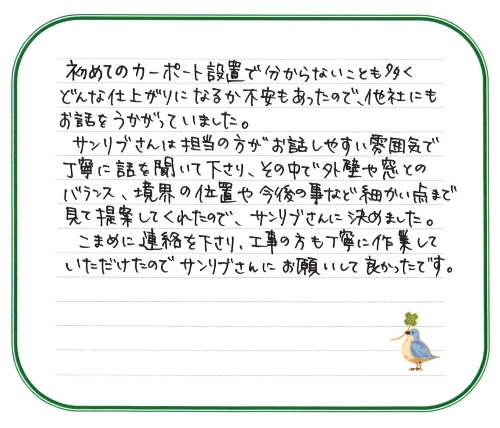 初めてのカーポート設置で分からないことも多く
どんな仕上がりになるか不安もあったので、他社にも
お話をうかがっていました。
サンリブさんは担当の方がお話しやすい雰囲気で
丁寧に話を聞いて下さり、その中で外壁や窓との
バランス、境界の位置や今後の事など細かい点まで
見て提案してくれたので、サンリブさんに決めました。
こまめに連絡を下さり、工事の方も丁寧に作業して
いただけたのでサンリブさんにお願いして良かったです。